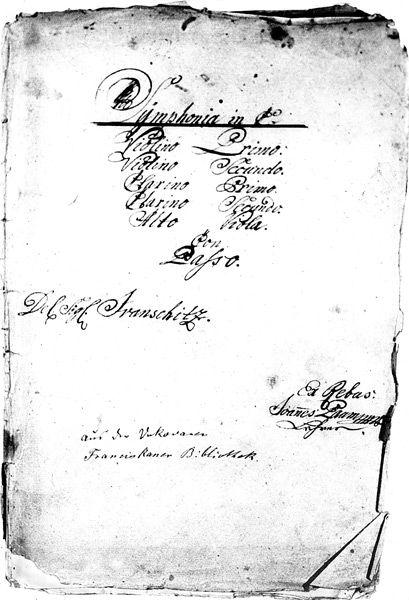 Symphonia in C.
Violino Primo:
Violino Secundo.
Clarino Primo.
Clarino Secundo.
Alto Viola.
Con
Basso.
Del Sigl Ivanschitz.
Ex Rebus:
Joannes
Lehrer
aus der Vukovarer
Franciskaner Bibliothek.